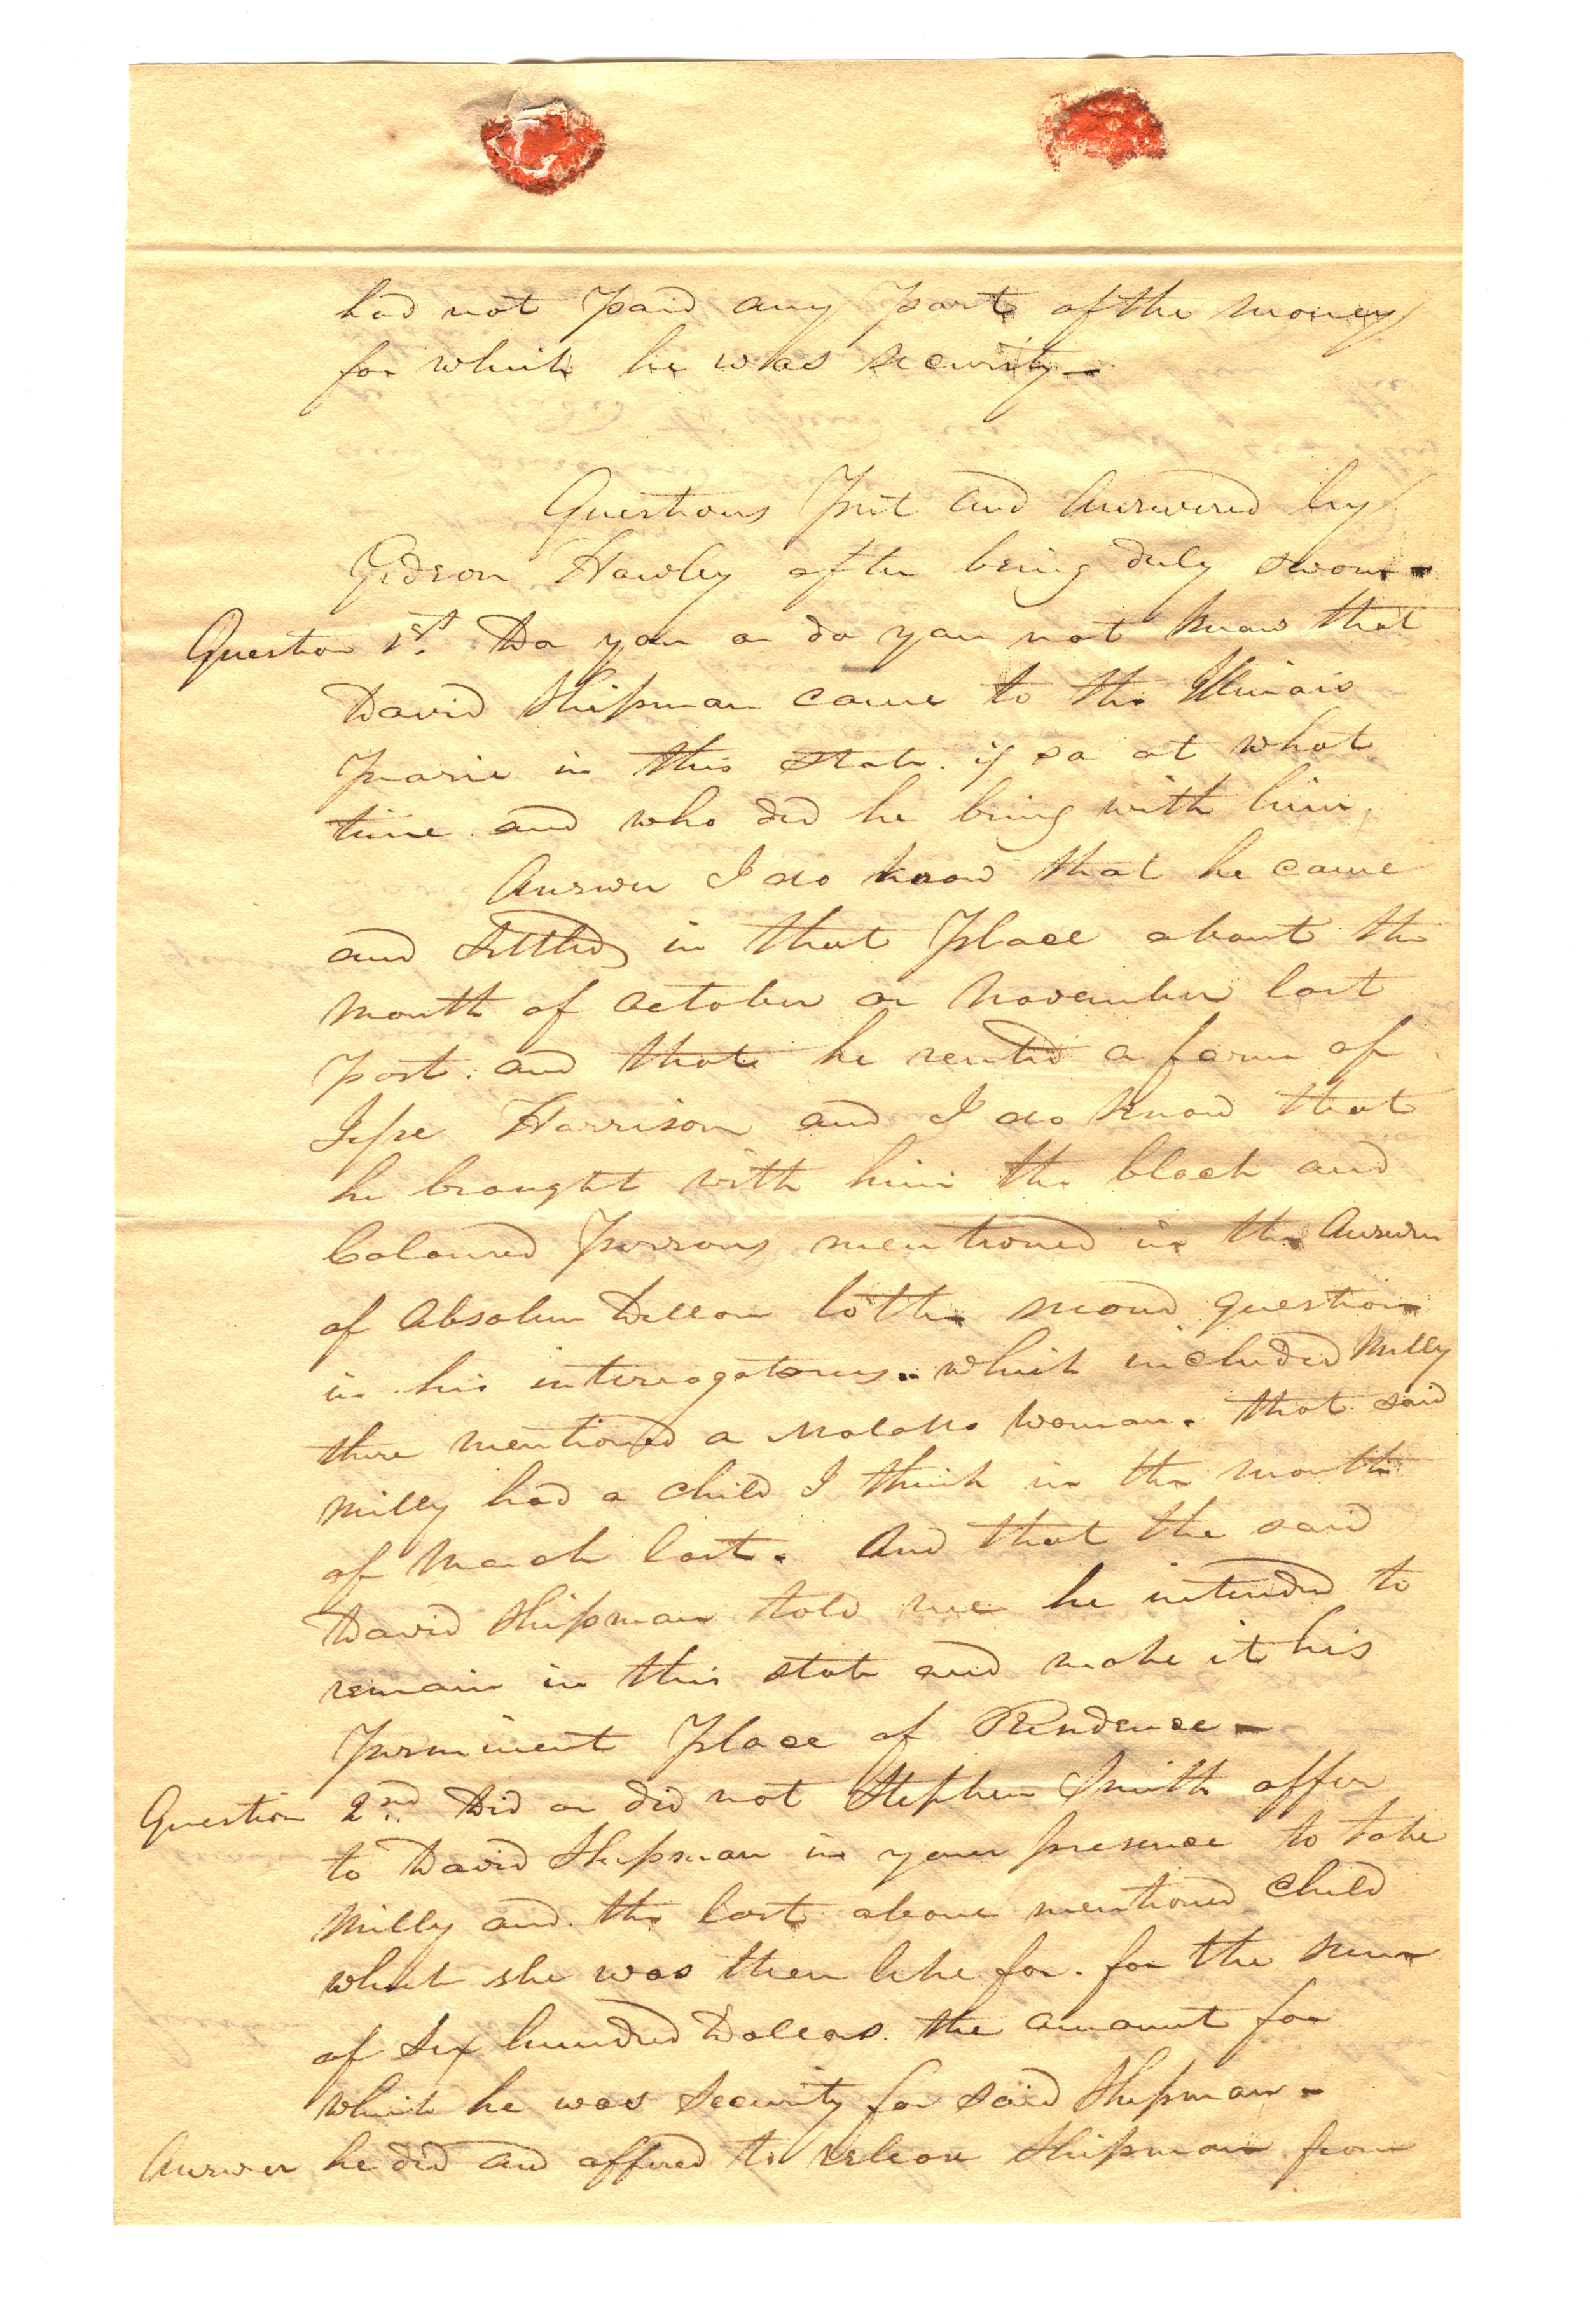 had not Paid any Part of the money
for which he was security—
Questions Put and Answered by
Gideon Hawley after being duly sworn—
Question 1st. Do you or do you not know that
David Shipman came to the Illinois
Prarie in this State. if so at what
time and who did he bring with him,
Answer I do know that he came
and Settled in that Place about the
month of October or November last
Past. and that he rented a farm of
Jesse Harrison and I do know that
he brought with him the black and
Coloured Persons mentioned in the Answer
of Absolem Dillon to the second question
in his interrogatorys. which included Milly
there mentioned a Molatto Woman. that said
Milly had a child I think in the month
of March last. And that the said
David Shipman told me he intended to
remain in this state and make it his
Perminent Place of Residence—
Question 2nd. Did or did not Stephen Smith offer
to David Shipman in your presence to take
Milly and the last above mentioned Child
what she was then like for. for the sum
of Six hundred Dollars. the amount for
which he was Security for said Shipman—
Answer he did and offered to release Shipman from